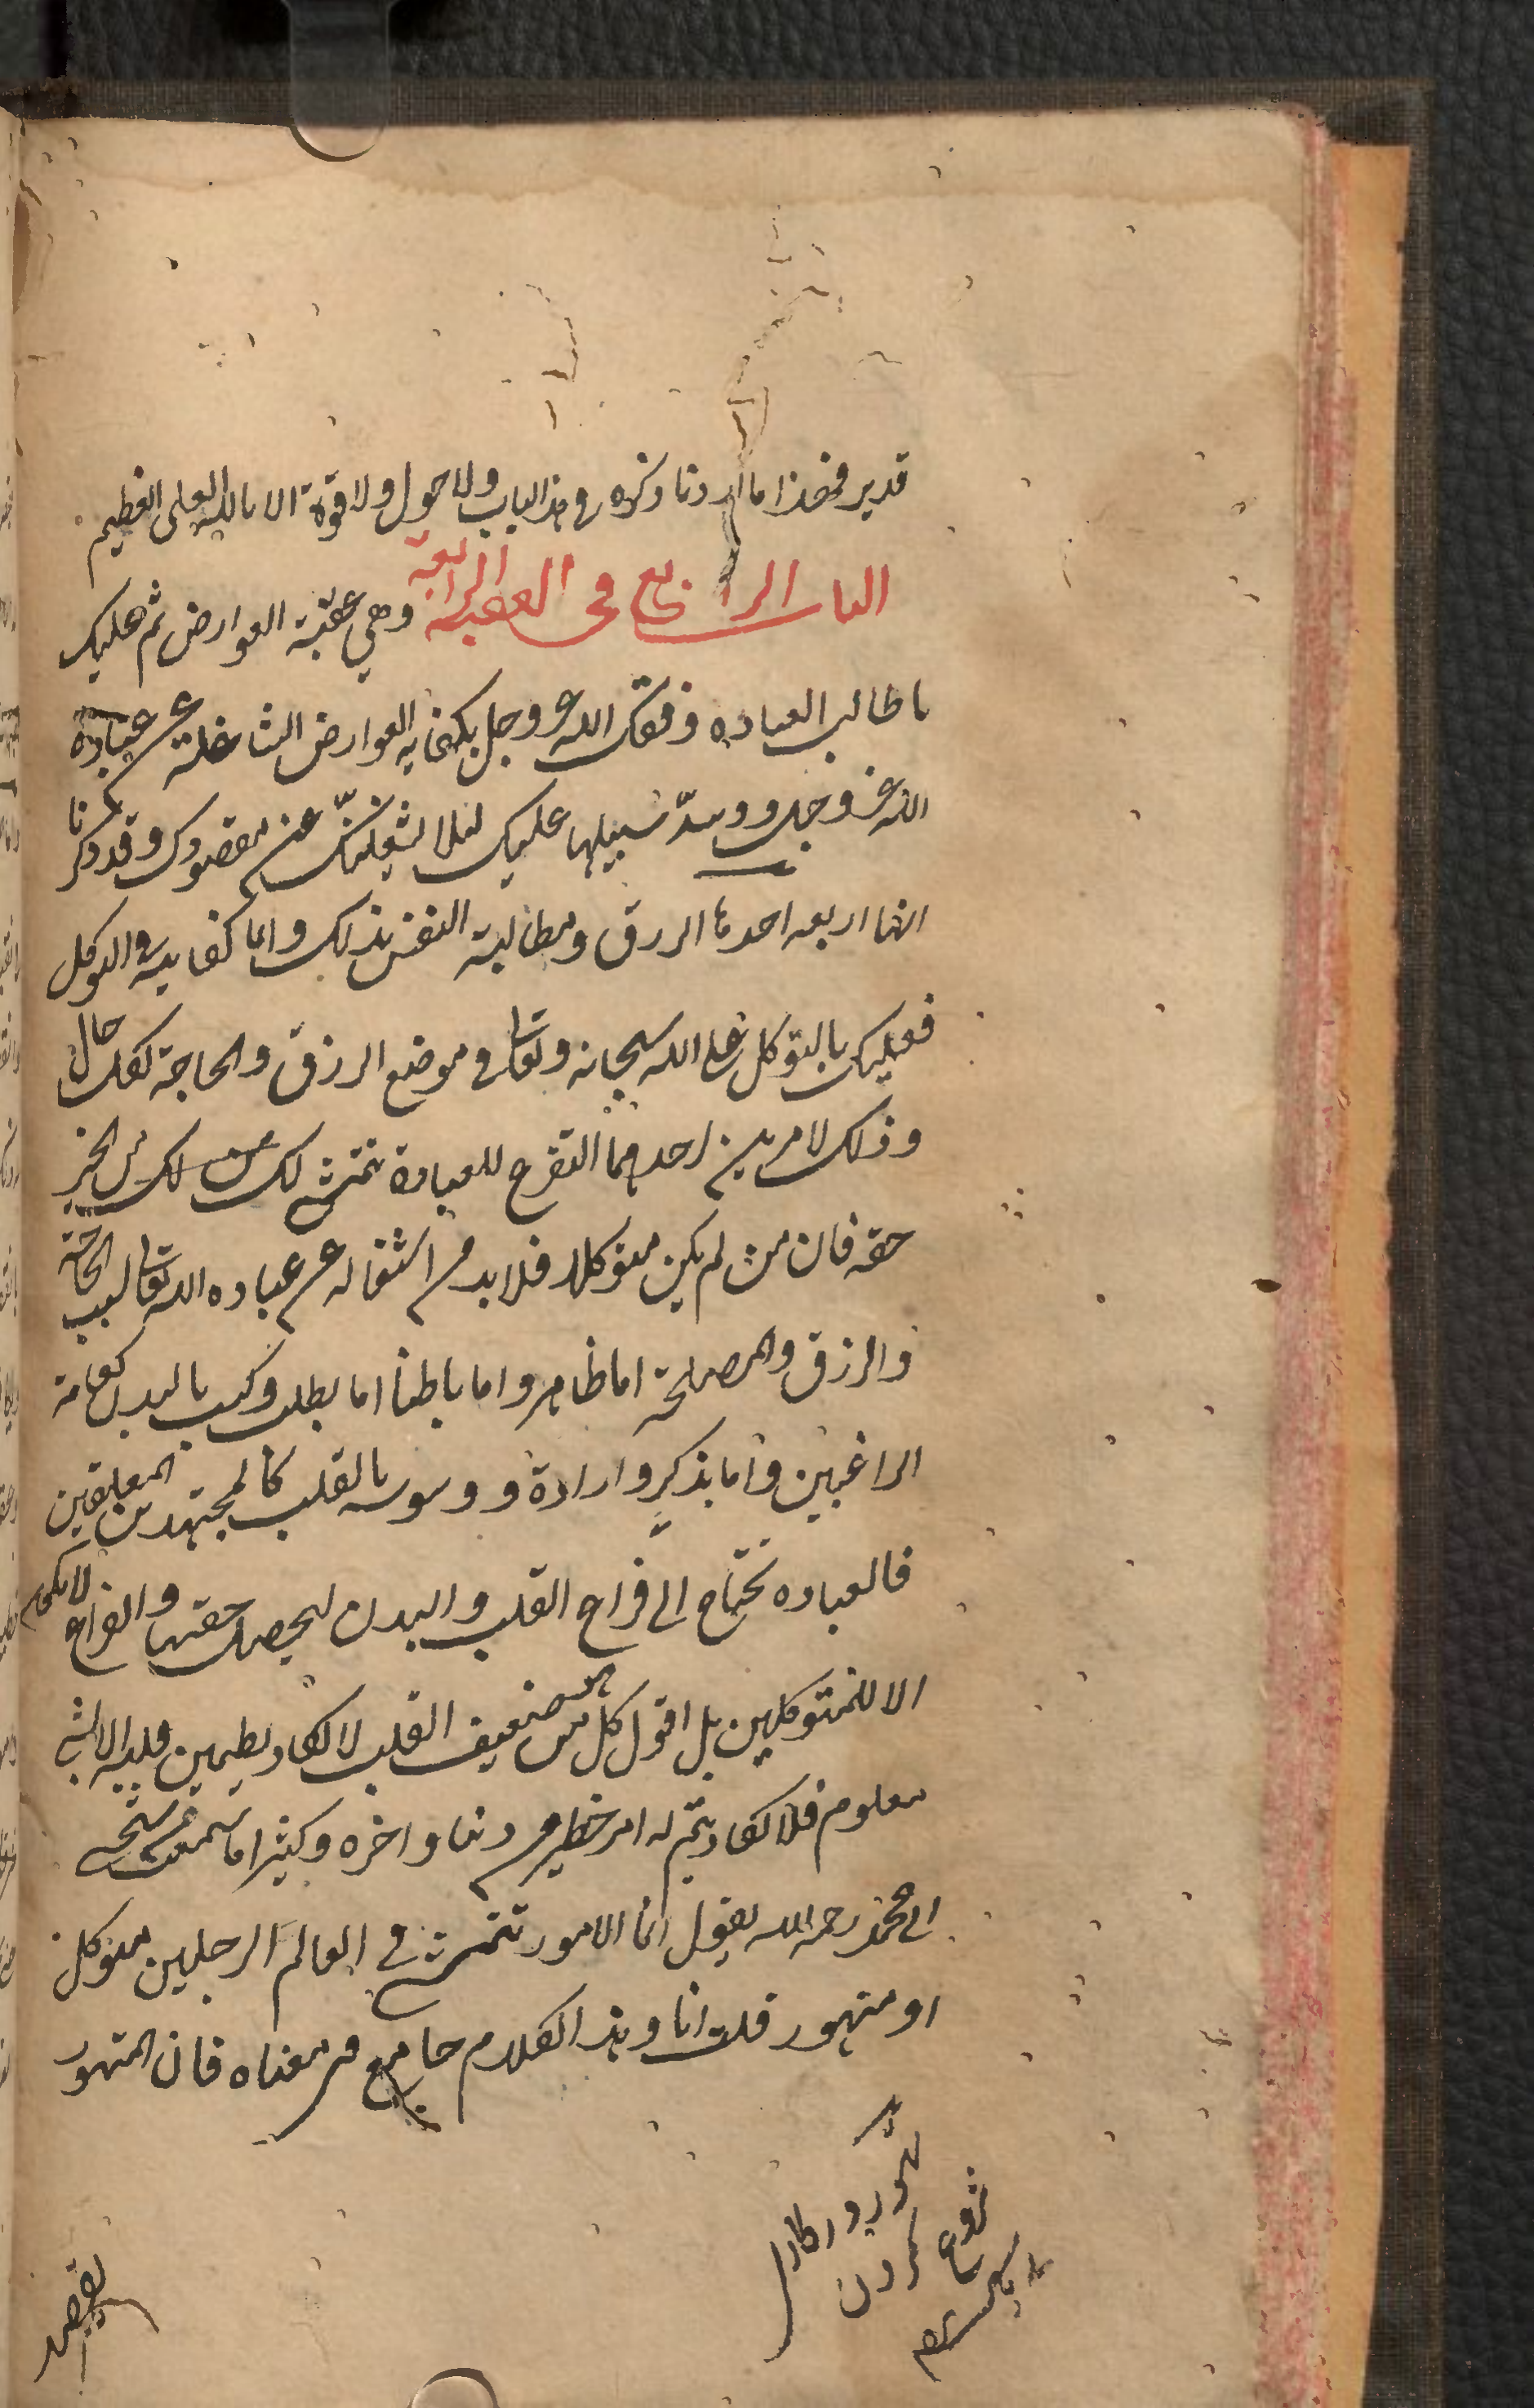 قدير فهذا ما اردنا ذكره فى هذا الباب ولا حول ولا قوة الا بالله العلى العظيم
الباب الرابع فى العقبة الرابعة وهى عقبة العوارض ثم عليك
يا طالب العباده وفقك الله عز وجل بكفاية العوارض الشاغلة عن عبادة
الله عز وجل وسدّ سبيلها عليك لئلا يشغلنّك عن مقصودك وقد ذكرنا
انها اربعه احدها الرزق ومطالبة النفس بذلك وانما كفايته فى التوكل
فعليك بالتوكل على الله سبحانه وتعالى فى موضع الرزق والحاجة بكل حال
وذلك لامرين احدهما التفرغ للعبادة يتمشى لك من الخير
حقه فان من لم يكن متوكلا فلا بد من اشتغاله عن عباده الله تعالى بسبب الحاجة
والرزق والمصلحة اما ظاهر واما باطنا اما بطلب وكسب بالبدن كعامة
الراغبين واما بذكرٍ وارادة ووسوسه بالقلب كالمجتهدين المعلقين
فالعباده تحتاج الى فراغ القلب والبدن ليحصل حقها والفراغ لا يكون
الا للمتوكلين بل اقول كل من هو ضعيف القلب لا يكاد يطمين قلبه الا بشى
معلوم فلا يكاد يتم له امر خطير من دنيا واخره وكثيرا ما سمعت شيخى
ابى محمد رحمه الله يقول انما الامور تتمشى فى العالم الرجلين متوكل
او متهور قلت انا وهذا الكلام جامع فى معناه فان المتهور
تهور در كار
شروع كردن
يقصد